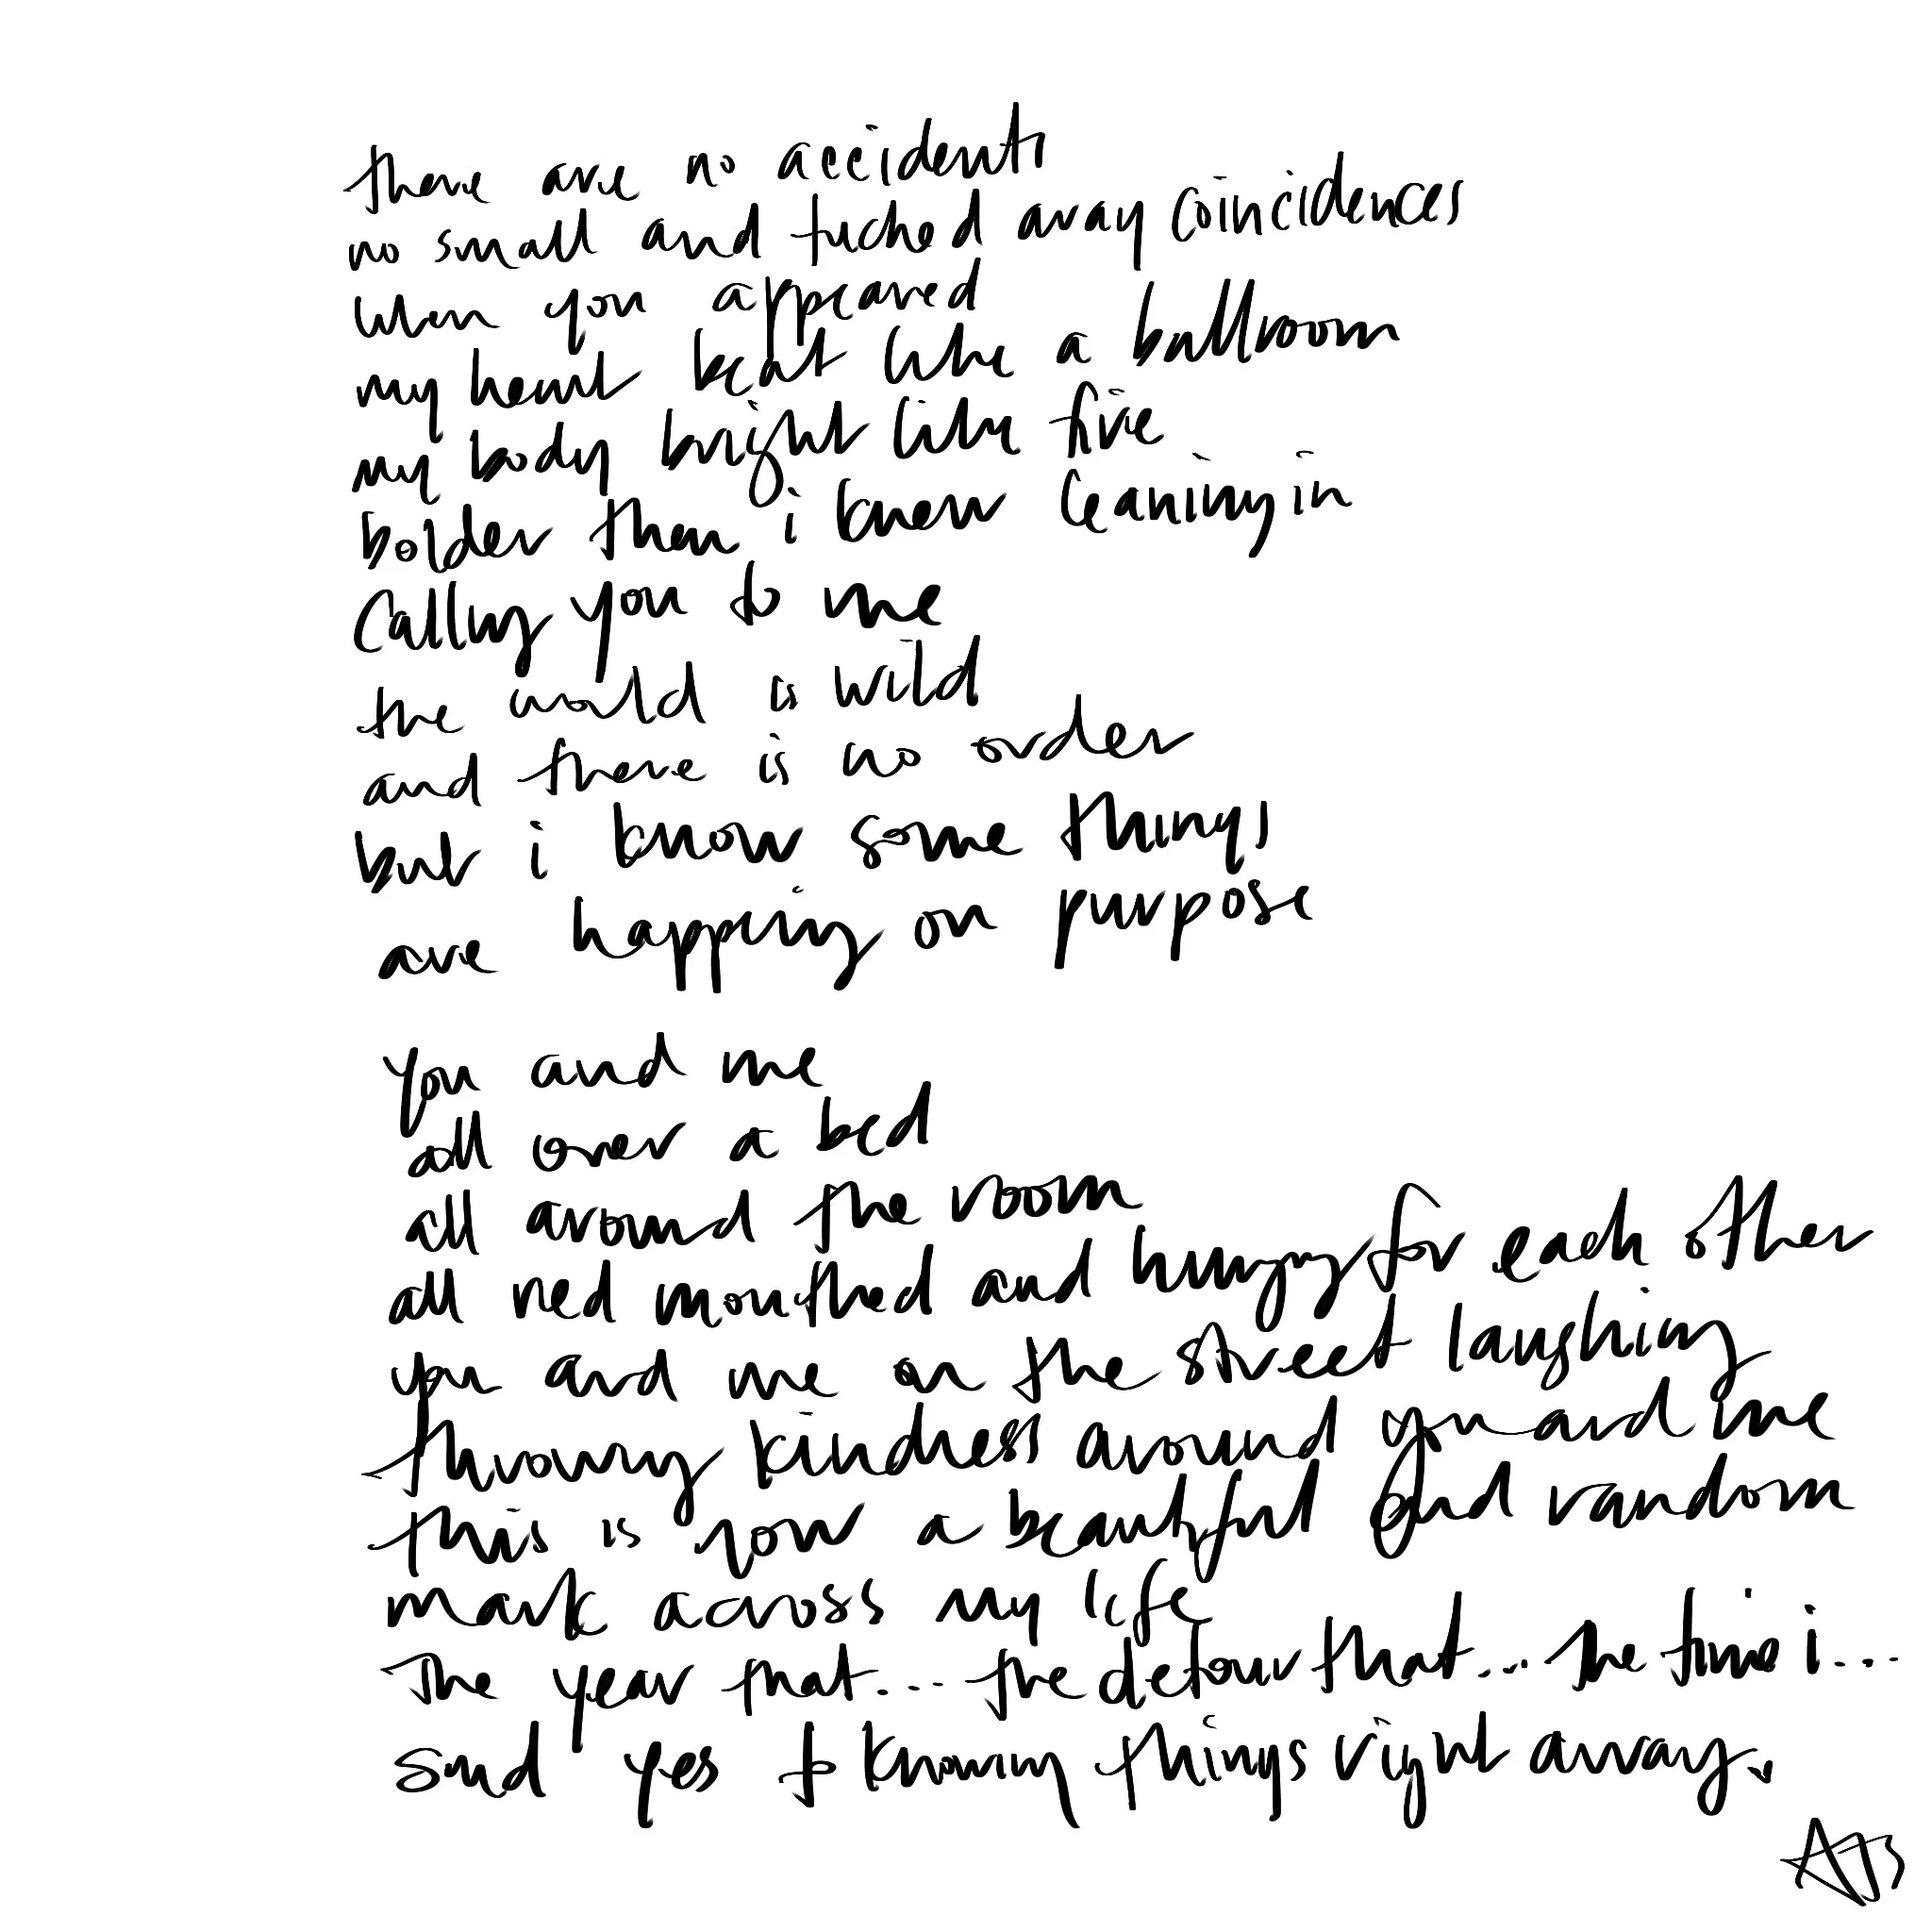 there are no accidents
no small and tucked away coincidences
when you appeared
my heart beat like a ballroom
my body bright like fire
bolder then i knew leaning in
calling you to me
the world is wild
and there is no order
but i know some things
are happening on purpose
you and me
all over a bed
all around the room
all red mouthed and hungry for each other
you and me on the street laughing
throwing kindness around you and me
this is now a beautiful and random
mark across my life
the year that.... the detour that... the time i...
said yes to knowing things right away.